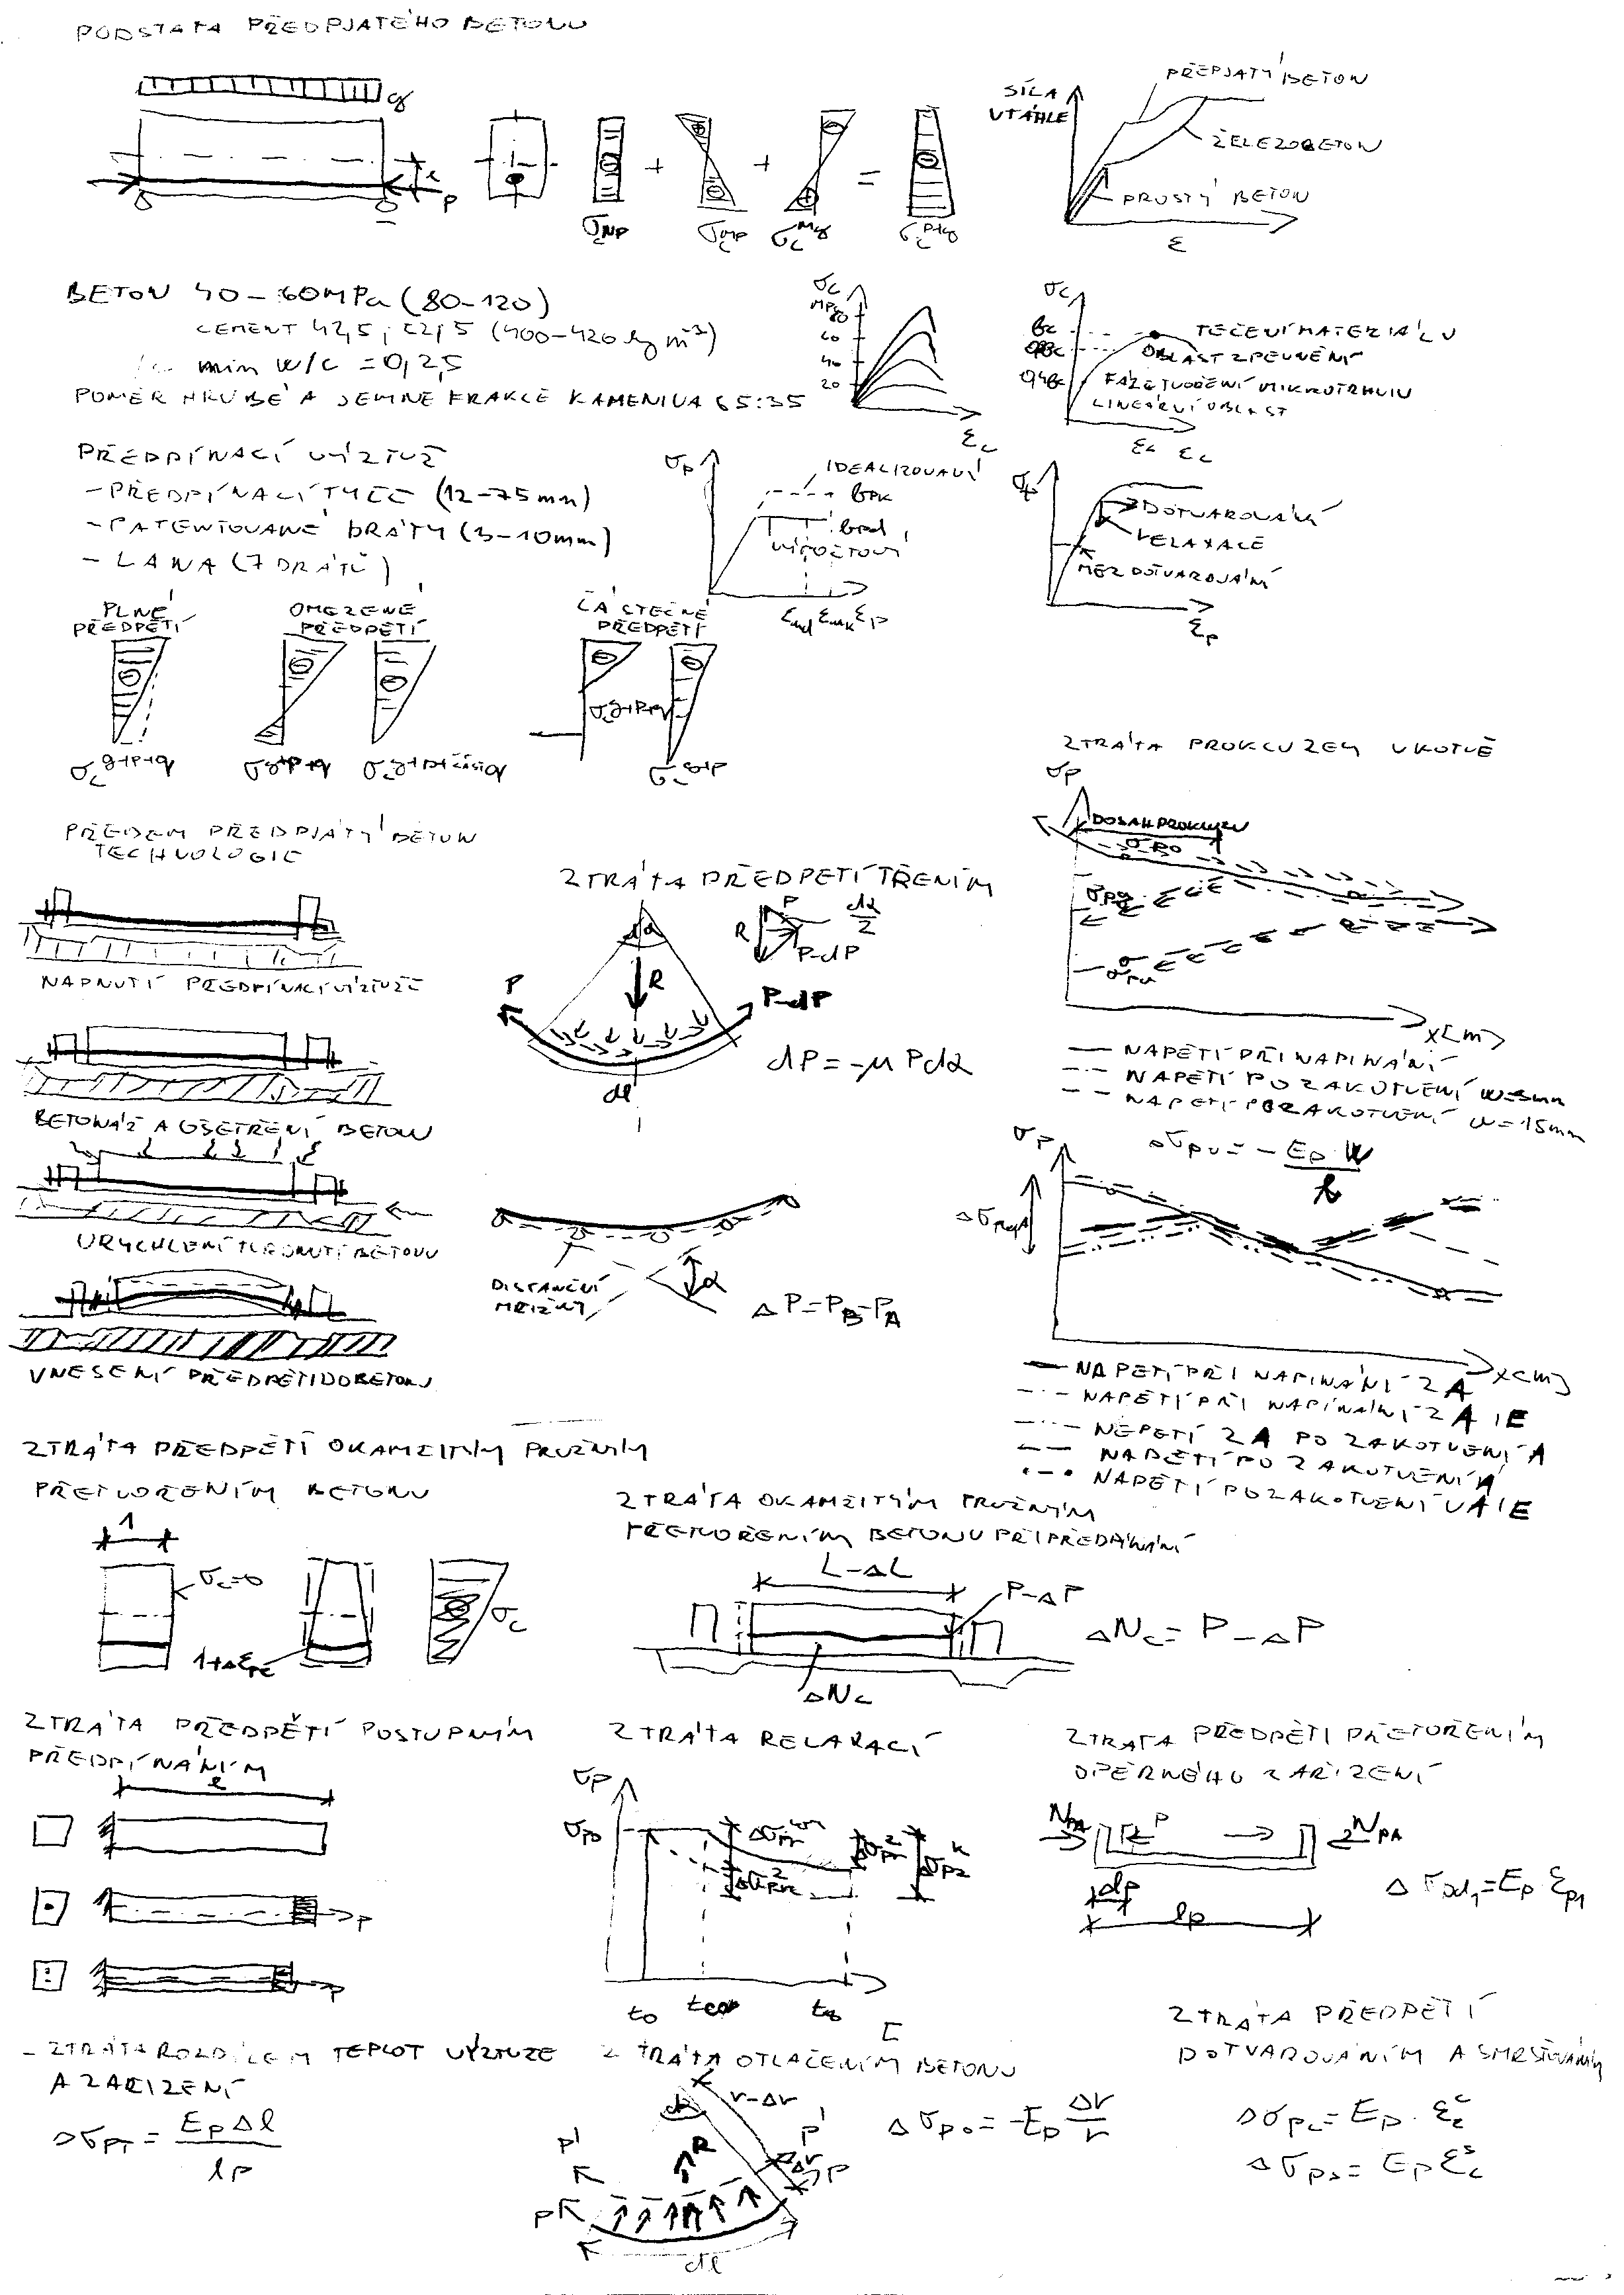 PODSTATA PŘEDPJATÉHO BETONU
q
P
+ + =
SÍLA
V TÁHLE
PŘEPJATÝ BETON
ŽELEZOBETON
PROSTÝ BETON
ε
BETON 40-60MPa (80-120)
CEMENT 42,5; 52,5 (400-420 kg m⁻³)
min w/c = 0,25
POMĚR HRUBÉ A JEMNÉ FRAKCE KAMENIVA 65:35
σc
MPa
80
60
40
20
εc
σc
TEČENÍ MATERIÁLU
OBLAST ZPEVNĚNÍ
FÁZE TVOŘENÍ MIKROTRHLIN
LINEÁRNÍ OBLAST
εc
PŘEDPÍNACÍ VÝZTUŽ
-PŘEDPÍNACÍ TYČE (12-75mm)
-PATENTOVANÉ DRÁTY (3-10mm)
- LANA (7 DRÁTŮ)
σp
IDEALIZOVANÝ
VÝPOČTOVÝ
εp
σp
DOTVAROVÁNÍ
RELAXACE
MEZ DOTVAROVÁNÍ
εp
PLNÉ
PŘEDPĚTÍ
OMEZENÉ
PŘEDPĚTÍ
ČÁSTEČNÉ
PŘEDPĚTÍ
σc g+p+q
ZTRÁTA PROKLUZEM V KOTVĚ
σp
DOSAH PROKLUZU
x[m]
— NAPĚTÍ PŘI NAPÍNÁNÍ
-·- NAPĚTÍ PO ZAKOTVENÍ w=5mm
-- NAPĚTÍ PO ZAKOTVENÍ w=15mm
PŘEDEM PŘEDPJATÝ BETON
TECHNOLOGIE
NAPNUTÍ PŘEDPÍNACÍ VÝZTUŽE
BETONÁŽ A OŠETŘENÍ BETONU
URYCHLENÍ TVRDNUTÍ BETONU
VNESENÍ PŘEDPĚTÍ DO BETONU
ZTRÁTA PŘEDPĚTÍ TŘENÍM
dα
R
P
P-dP
dα/2
P
R
P-dP
dl
dP = -μ P dα
DISTANČNÍ
MŘÍŽKY
α
ΔP=PB-PA
σp
Δσpw = - Ep w / l
x[m]
— NAPĚTÍ PŘI NAPÍNÁNÍ Z A
-·- NAPĚTÍ PŘI NAPÍNÁNÍ Z A I E
-··- NEPĚTÍ Z A PO ZAKOTVENÍ A
-- NAPĚTÍ PO ZAKOTVENÍ A
·-· NAPĚTÍ PO ZAKOTVENÍ V A I E
ZTRÁTA PŘEDPĚTÍ OKAMŽITÝM PRUŽNÝM
PŘETVOŘENÍM BETONU
1
σc=0
σc
ZTRÁTA OKAMŽITÝM PRUŽNÝM
PŘETVOŘENÍM BETONU PŘI PŘEDÁVÁNÍ
L-ΔL
P-ΔP
ΔNc
ΔNc = P - ΔP
ZTRÁTA PŘEDPĚTÍ POSTUPNÝM
PŘEDPÍNÁNÍM
l
P
P
ZTRÁTA RELAXACÍ
σp
σp0
t0
ZTRÁTA PŘEDPĚTÍ PŘETOŘENÍM
OPĚRNÉHO ZAŘÍZENÍ
NPA
P
NPA
lp
Δσpd1=Ep εp1
- ZTRÁTA ROZDÍLEM TEPLOT VÝZTUŽE
A ZAŘÍZENÍ
ΔσpT = Ep Δl / lp
ZTRÁTA OTLAČENÍM BETONU
r-Δr
dα
R
Δr
P'
P'
P
P
dl
Δσpo = -Ep Δr/r
ZTRÁTA PŘEDPĚTÍ
DOTVAROVÁNÍM A SMRŠŤOVÁNÍM
Δσpc = Ep · εcc
Δσps = Ep εcs